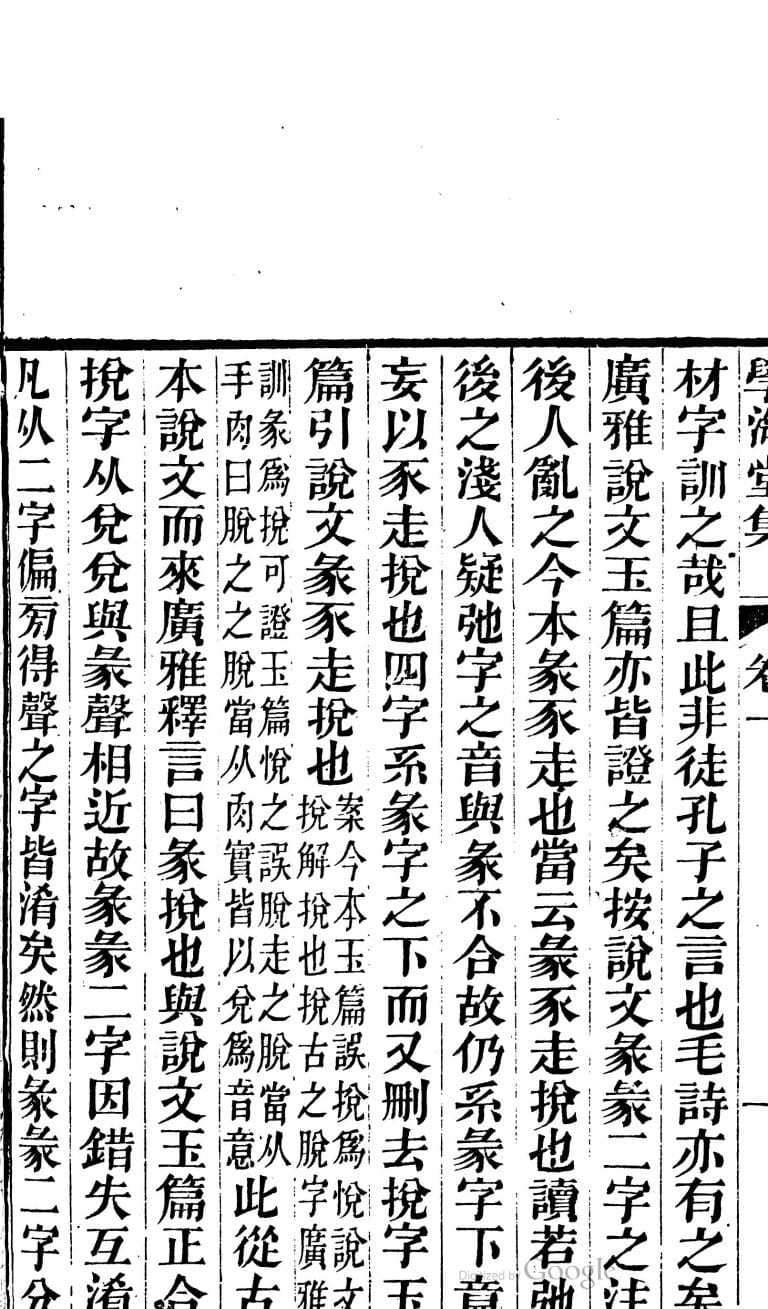 學海堂集 卷一 一
材字訓之哉且此非徒孔子之言也毛詩亦有之矣
廣雅說文玉篇亦皆證之矣按說文彖彖二字之注
後人亂之今本彖豕走也當云彖豕走挩也讀若弛
後之淺人疑弛字之音與彖不合故仍系彖字下意
妄以豕走挩也四字系彖字之下而又刪去挩字玉
篇引說文彖豕走挩也
案今本玉篇誤挩爲悅說文
挩解挩也挩古之脫字廣雅
訓彖爲挩可證玉篇悅之誤脫走之脫當从
手肉曰脫之之脫當从肉實皆以兌爲音意
此從古
本說文而來廣雅釋言曰彖挩也與說文玉篇正合
挩字从兌兌與彖聲相近故彖彖二字因錯失互淆
凡从二字偏㫄得聲之字皆淆矣然則彖彖二字分
Digitized by Google